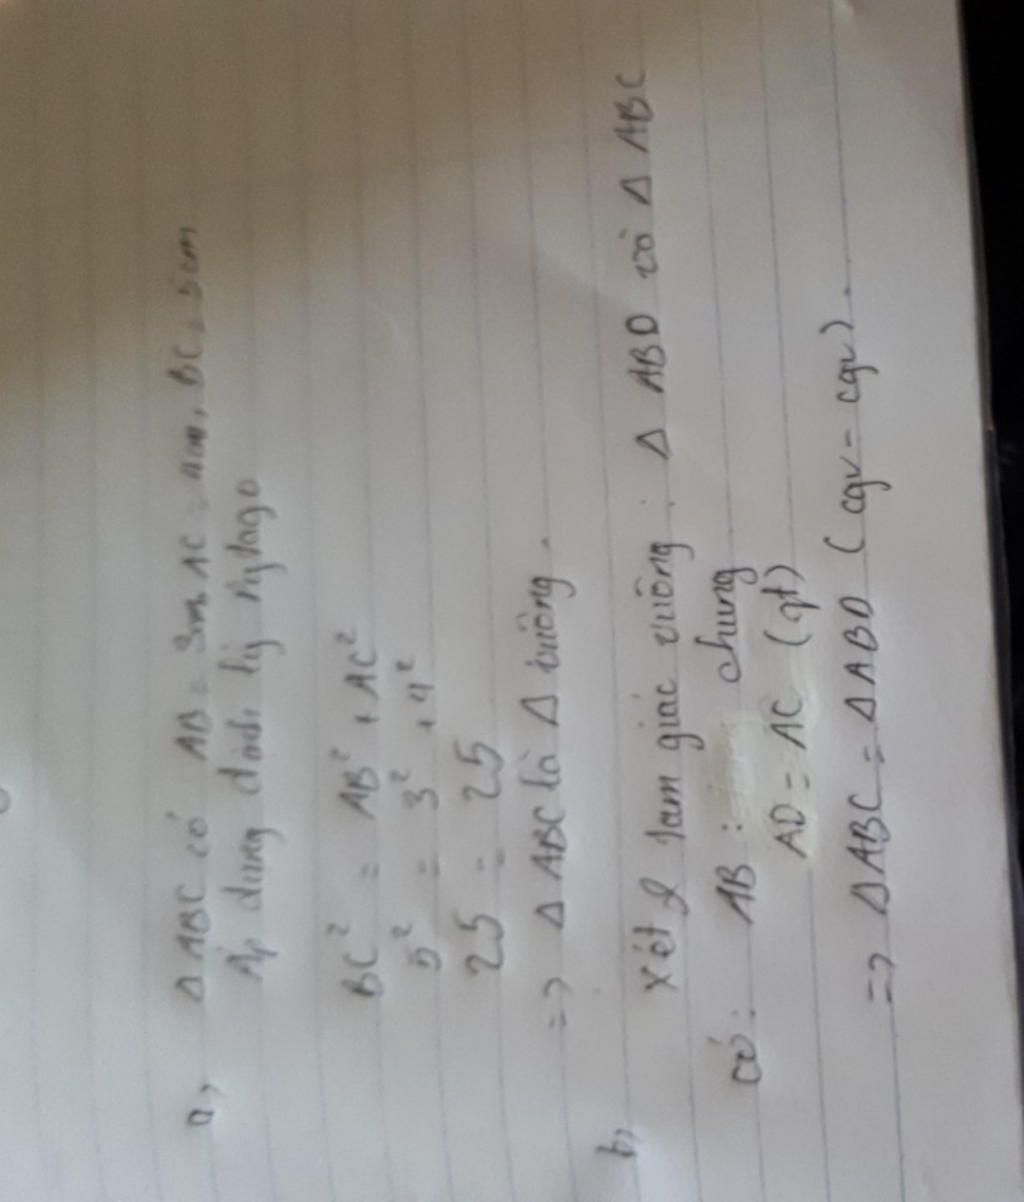 a, Δ ABC có AB = 3cm, AC = 4cm, BC = 5cm
Áp dụng định lý Pytago
BC² = AB² + AC²
5² = 3² + 4²
25 = 25
=> Δ ABC là Δ vuông.
b, Xét 2 tam giác vuông: Δ ABD và Δ ABC
có: AB: chung
AD = AC (gt)
=> Δ ABC = Δ ABD (cgv - cgv).